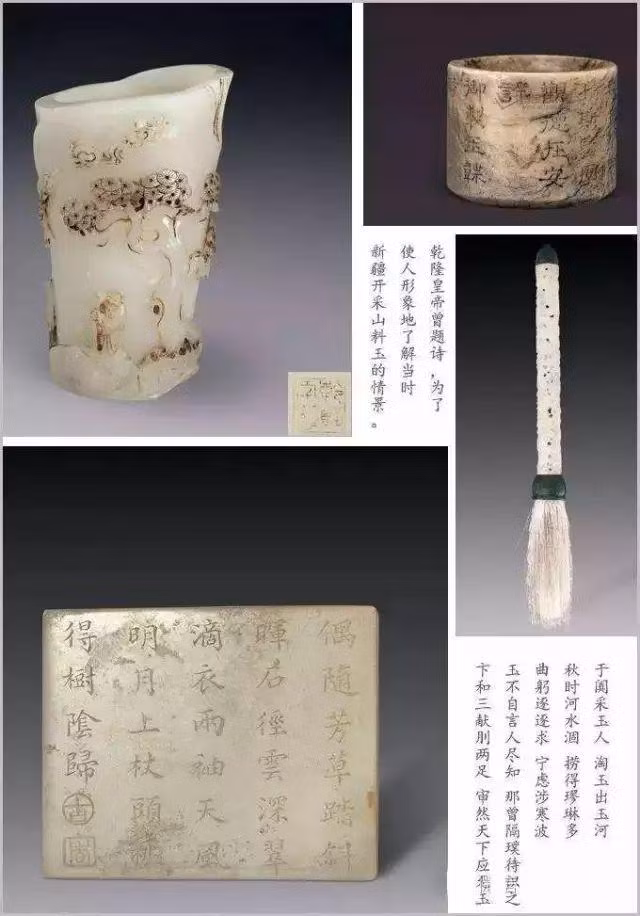 觀德在安
詳
御製玉韘
乾隆皇帝曾题诗，为了
使人形象地了解当时
新疆开采山料玉的情景。
偶隨芳草踏斜
暉石徑雲深翠
滴衣雨袖天風
明月上杖頭挑
得樹陰歸
于阗采玉人 淘玉出玉河
秋时河水涸 捞得璆琳多
曲躬逐逐求 宁虑涉寒波
玉不自言人尽知 那曾隔璞待识之
卞和三献刖两足 审然天下应稀玉